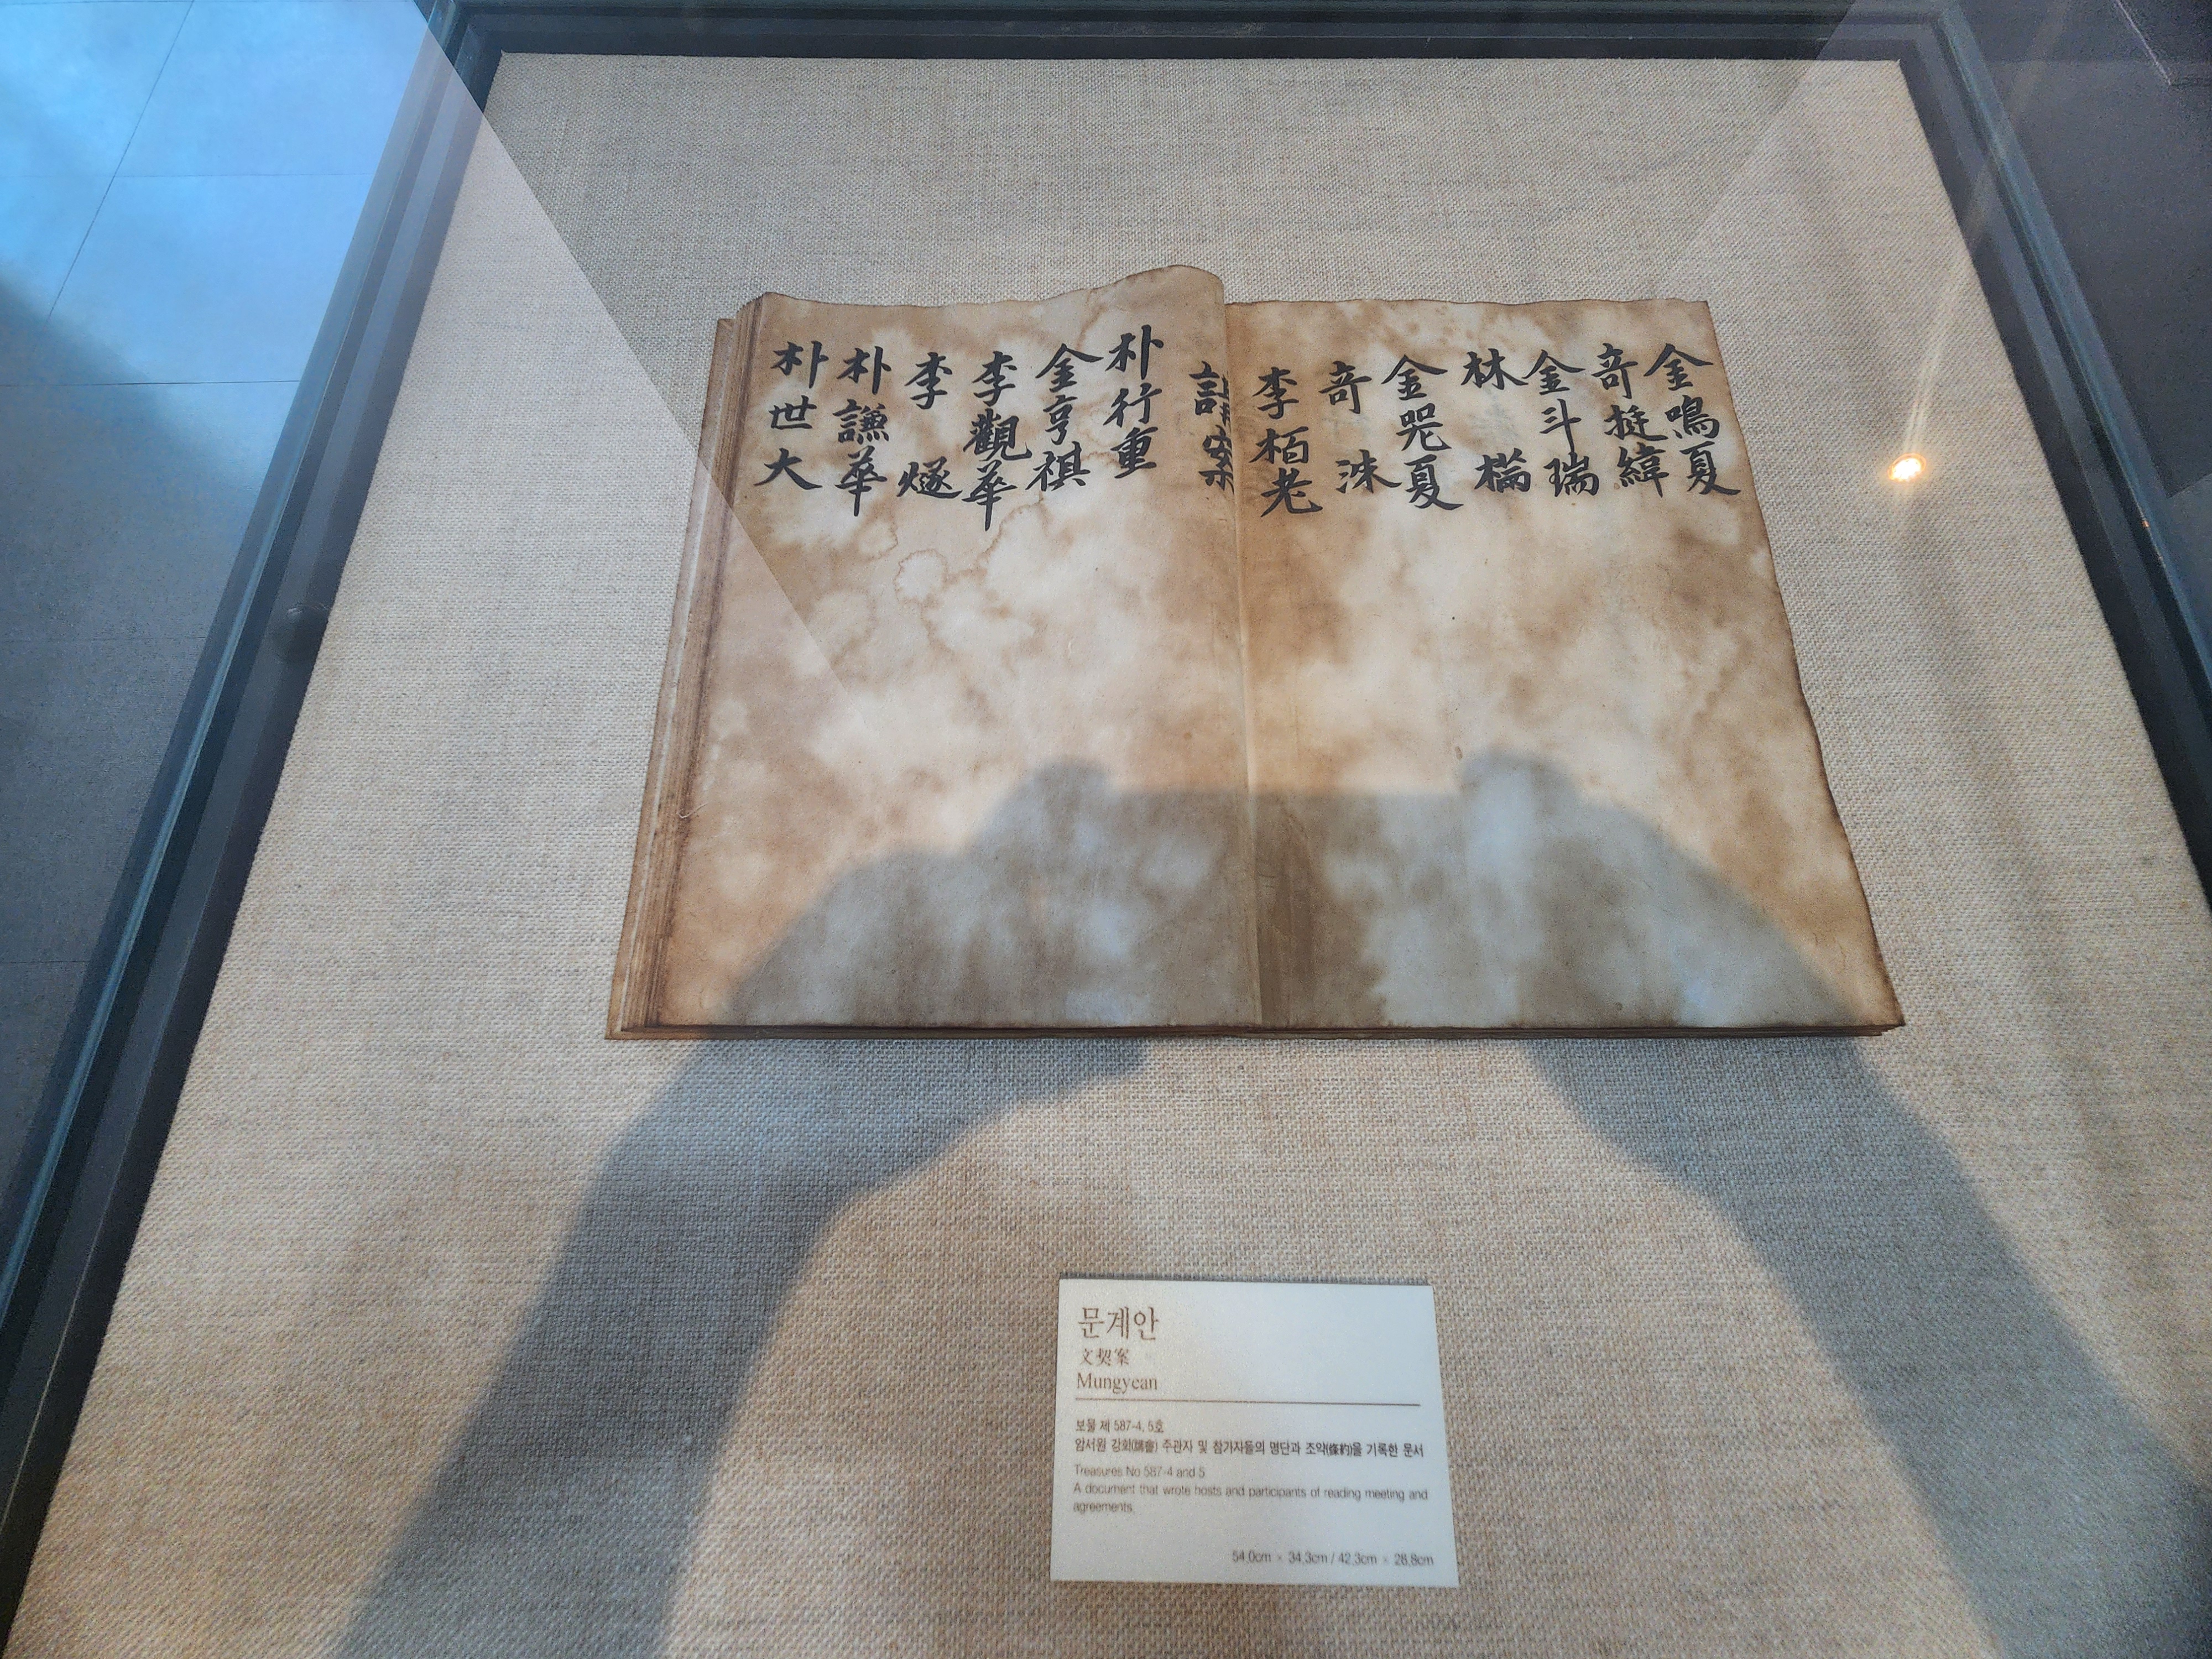 金鳴夏
奇挺緯
金斗瑞
林
金
夏
奇 洙
李栢老
案
朴行重
金亨祺
李觀華
李 燧
朴謙華
朴世大
문계안
文契案
Mungyean
보물 제 587-4, 5호
암서원 강회(講會) 주관자 및 참가자들의 명단과 조약(條約)을 기록한 문서
Treasures No 587-4 and 5
A document that wrote hosts and participants of reading meeting and
agreements.
54.0cm × 34.3cm / 42.3cm × 28.8cm